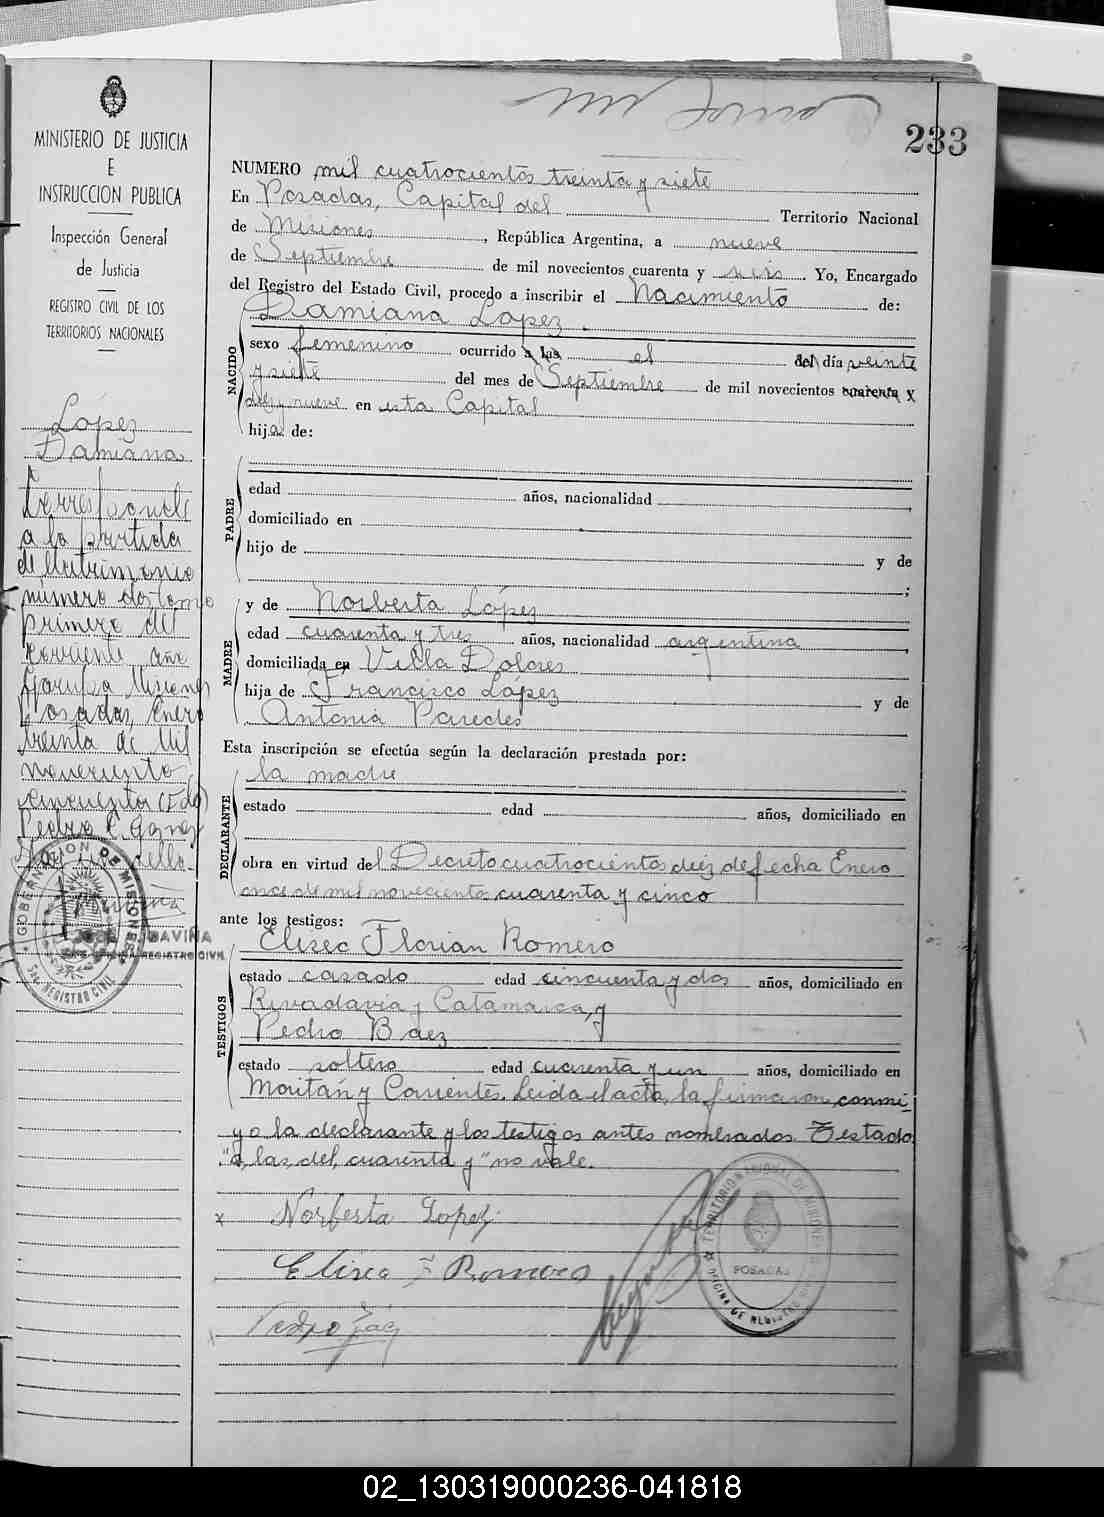 233
MINISTERIO DE JUSTICIA
E
INSTRUCCION PUBLICA
Inspección General
de Justicia
REGISTRO CIVIL DE LOS
TERRITORIOS NACIONALES
López
Damiana
Corresponde
a la partida
de Matrimonio
número dos, tomo
primero del
corriente año
Garupá Misiones
Posadas, Enero
treinta de Mil
novecientos
cincuenta (Fdo)
Pedro C. Gomez
sello
GOBERNACION DE MISIONES
REGISTRO CIVIL
NUMERO mil cuatrocientos treinta y siete
En Posadas, Capital del Territorio Nacional
de Misiones, República Argentina, a nueve
de Septiembre de mil novecientos cuarenta y seis. Yo, Encargado
del Registro del Estado Civil, procedo a inscribir el Nacimiento de:
NACIDO
Damiana Lopez.
sexo femenino ocurrido a las el del día veinte
y siete del mes de Septiembre de mil novecientos cuarenta y
diez y nueve en esta Capital
hija de:
PADRE
edad años, nacionalidad
domiciliado en
hijo de y de
;
MADRE
y de Norberta López
edad cuarenta y tres años, nacionalidad argentina
domiciliada en Villa Dolores
hija de Francisco López y de
Antonia Paredes
Esta inscripción se efectúa según la declaración prestada por:
DECLARANTE
la madre
estado edad años, domiciliado en
obra en virtud del Decreto cuatrocientos diez de fecha Enero
once de mil novecientos cuarenta y cinco
ante los testigos:
TESTIGOS
Eliseo Florian Romero
estado casado edad cincuenta y dos años, domiciliado en
Rivadavia y Catamarca, y
Pedro Baez
estado soltero edad cuarenta y un años, domiciliado en
Moritán y Corrientes. Leida el acta, la firmaron conmi-
go la declarante y los testigos antes nombrados. Testado
"a, las, del, cuarenta y" no vale.
x Norberta Lopez
Eliseo F Romero
Pedro Báez
TERRITORIO NACIONAL DE MISIONES
POSADAS
OFICINA DE
02_130319000236-041818